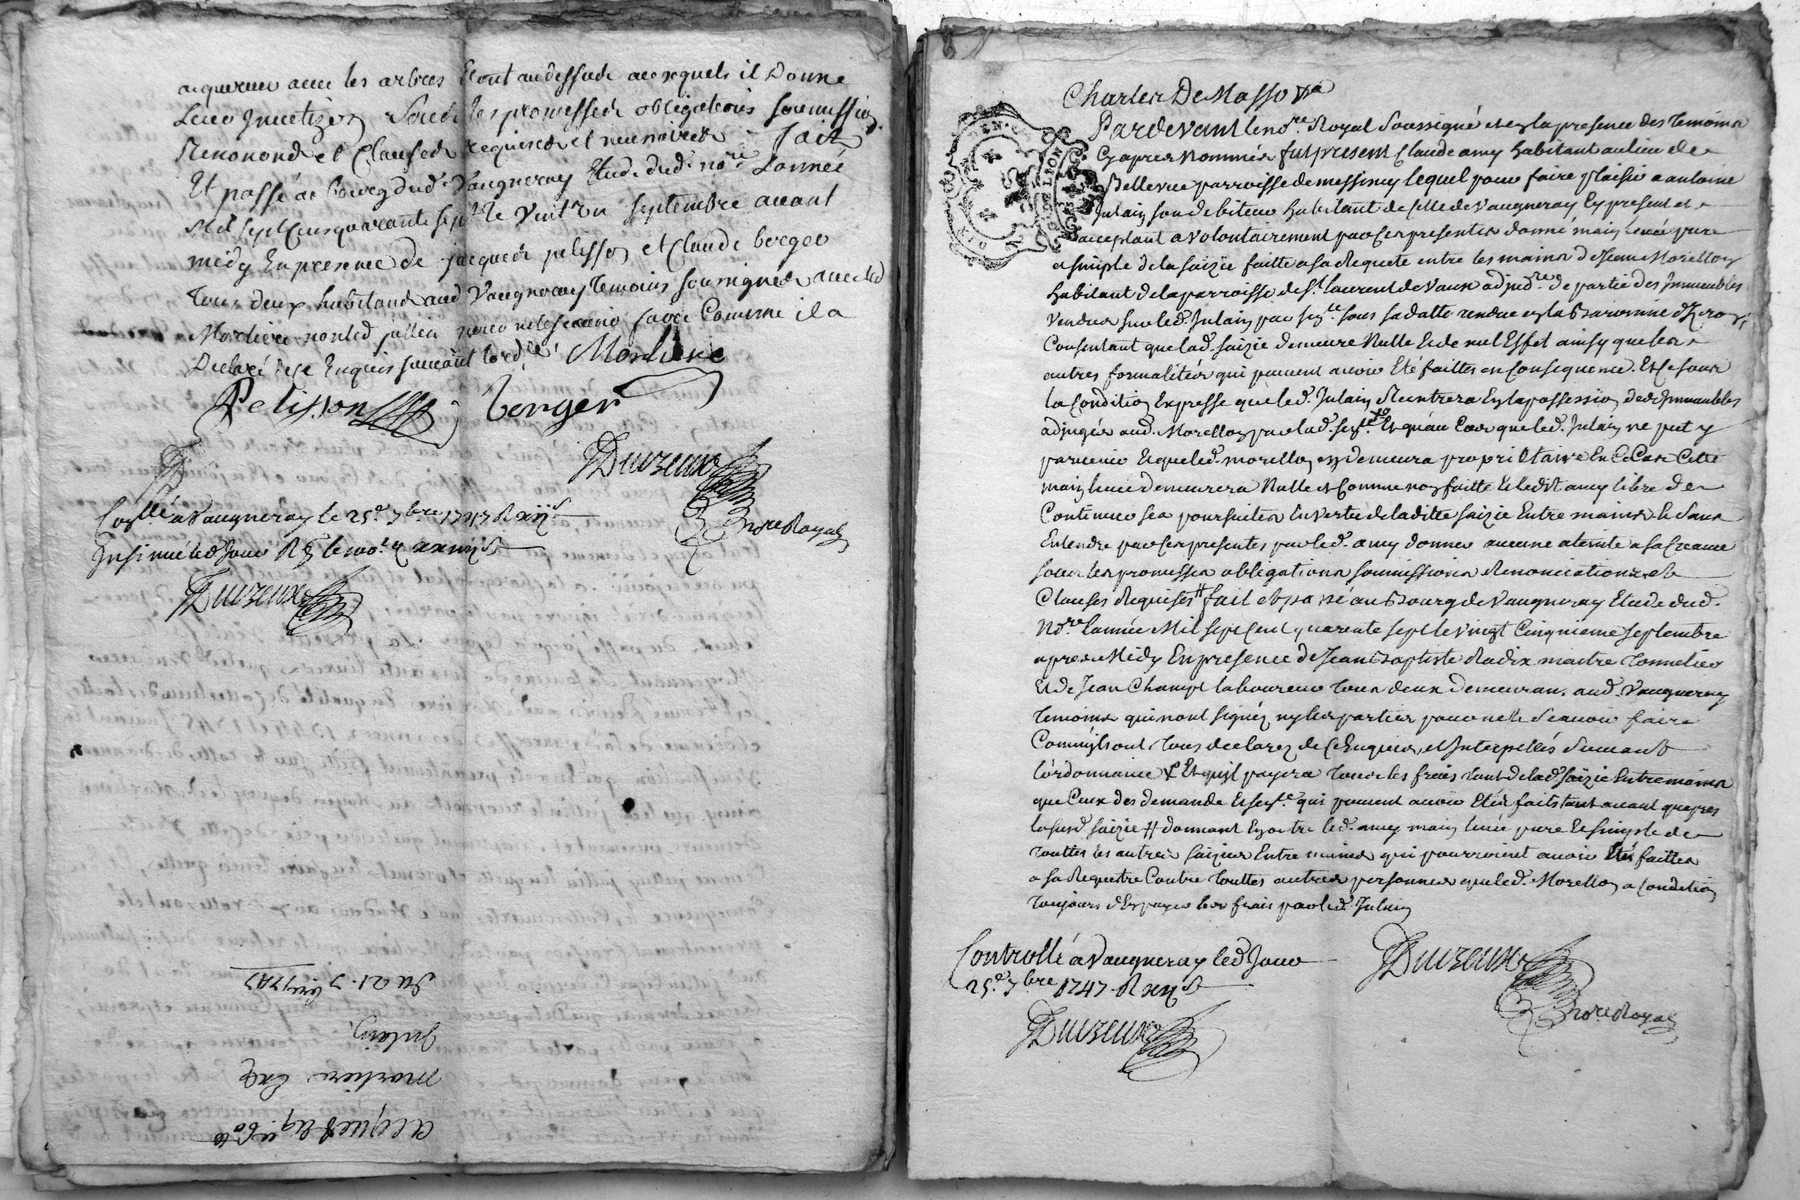 acquereur avec les arbres étant au dessus desquels il Donne
Sous les promesses obligations soumissions
Renonond et Clauses requises et necessaires Fait
Et passé au bourg dud. Vaugneray Etude dud. no.re L'année
Mil sept Cens quarante sept le vint un septembre avant
midy En presence de jacques pelisson et Claude berger
tous deux habitans aud. Vaugneray temoins soussignés avec led.
Morliere non led. jullin pour ne le scavoir faire Comme il a
Declaré de ce Enquis suivant l'ord.ce Morliere
Pelisson berger
Duvreux
no.re Royal
Con.llé a Vaugneray le 25.e 7bre 1747 R xij s
Insinué led. Jour
Duvreux
acquet
morliere
Julain
Du 21. 7bre 1747
Charles De Masso
GEN. DE LION
Pardevant le no.re Royal Soussigné et en la presence des temoins
Cy apres Nommés fut present Claude amy habitant au lieu de
Bellevue parroisse de messimy lequel pour faire plaisir a antoine
Julain son debiteur habitant de celle de Vaugneray Cy present et
acceptant a volontairement par ces presentes donné main levée pure
et simple de la saizie faitte a sa Requete entre les mains de Jean Morellon
habitant de la parroisse de St. laurent de Vaux adjud.re de partie des Immeubles
vendus sur led. Julain par sen.ce sous sa datte rendue en la Baronnie
Consentant que lad. saizie demeure Nulle et de nul Effet ainsy que les
autres formalités qui peuvent avoir Eté faittes en Consequence. Et ce sous
la Condition Expresse que led. Julain Rentrera En la possession des Immeubles
adjugés aud. Morellon par lad. sen.ce Et qu'au Cas que led. Julain ne put y
parvenir et que led. morellon en demeura proprietaire En ce Cas Cette
main levée demeurera Nulle et Comme non faitte et ledit amy libre de
Continuer ses poursuites En vertu de laditte saizie Entre mains. Sans
Entendre par ces presentes par led. amy donner aucune atteinte a sa Creance
sous les promesses obligations soumissions Renonciations et
Clauses Requises # fait et passé au Bourg de Vaugneray Etude dud.
No.re l'année Mil sept Cent quarente sept le vingt Cinquieme septembre
apres Midy En presence de Jean Baptiste Radix maitre tonnelier
Et de Jean Champt laboureur tous deux demeurans aud. Vaugneray
temoins qui n'ont signéz ny les parties pour ne le sçavoir faire
Comm'ils ont tous declarez de ce Enquis et Interpellés Suivant
l'ordonnance # Et qu'jl payera tous les frais tant de lad. saizie Entre mains
que Ceux des demande Et sen.ce qui peuvent avoir Etés faits tant avant que apres
lasusd. saizie # donnant En outre led. amy main levée pure et simple de
touttes les autres saizies Entre mains qui pourroient avoir Etés faittes
a sa Requettre Contre touttes autres personnes que led. Morellon a Condition
toujours d'En payer les frais par led. Julain
Controllé a Vaugneray led. Jour
25.e 7bre 1747. R xij s
Duvreux
Duvreux
no.re Royal